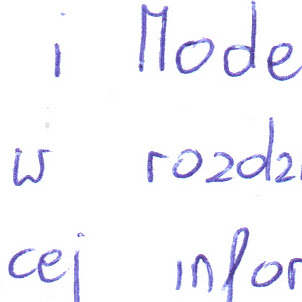 i Mode
w rozdz
cej infor